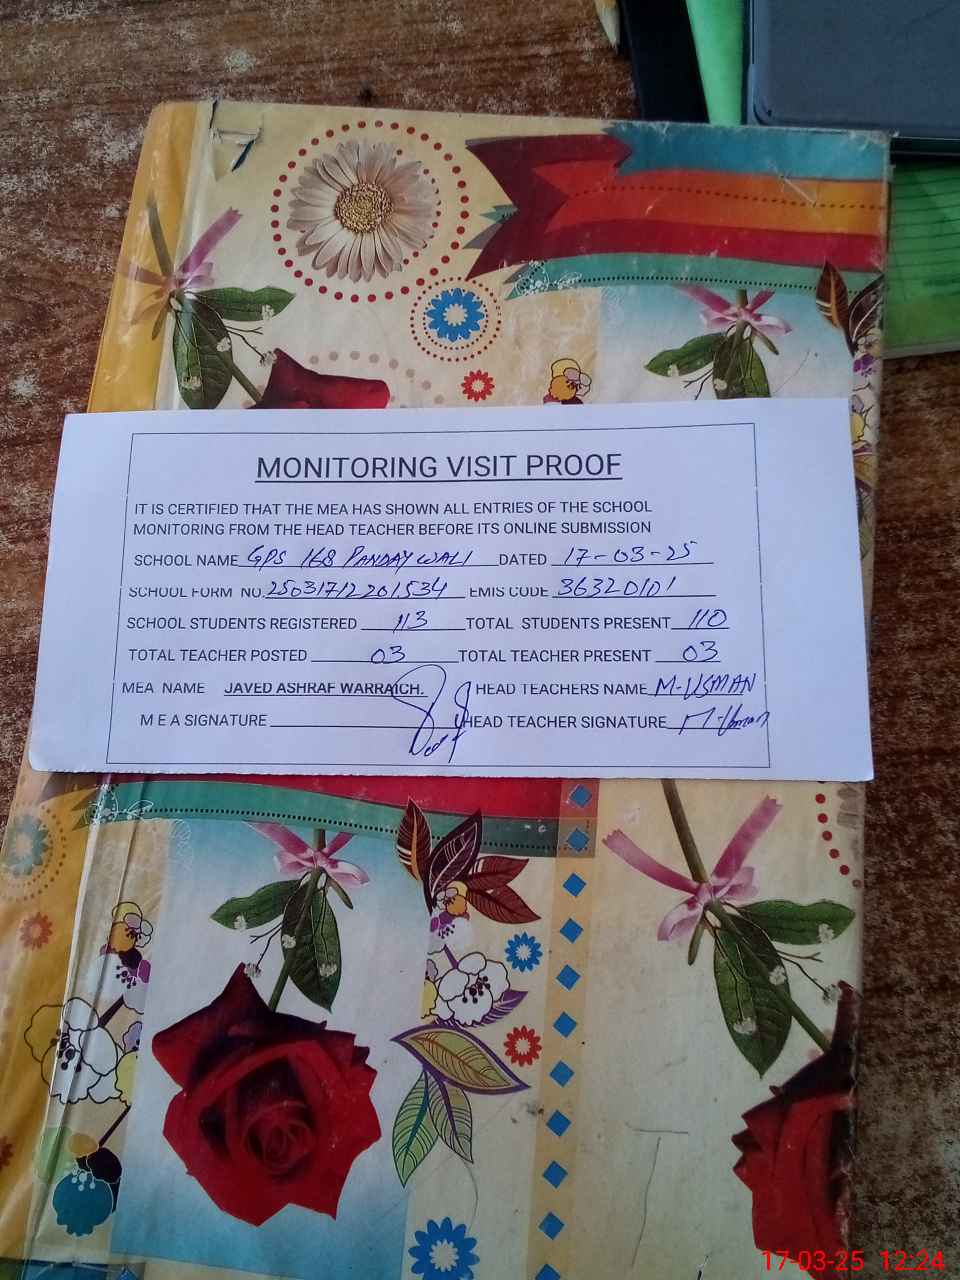 MONITORING VISIT PROOF
IT IS CERTIFIED THAT THE MEA HAS SHOWN ALL ENTRIES OF THE SCHOOL
MONITORING FROM THE HEAD TEACHER BEFORE ITS ONLINE SUBMISSION
SCHOOL NAME GPS 168 PANDAY WALI DATED 17-03-25
SCHOOL FORM NO. 25031712201534 EMIS CODE 36320101
SCHOOL STUDENTS REGISTERED 113 TOTAL STUDENTS PRESENT 110
TOTAL TEACHER POSTED 03 TOTAL TEACHER PRESENT 03
MEA NAME JAVED ASHRAF WARRAICH. HEAD TEACHERS NAME M-USMAN
M E A SIGNATURE HEAD TEACHER SIGNATURE M-Usman
17-03-25 12:24